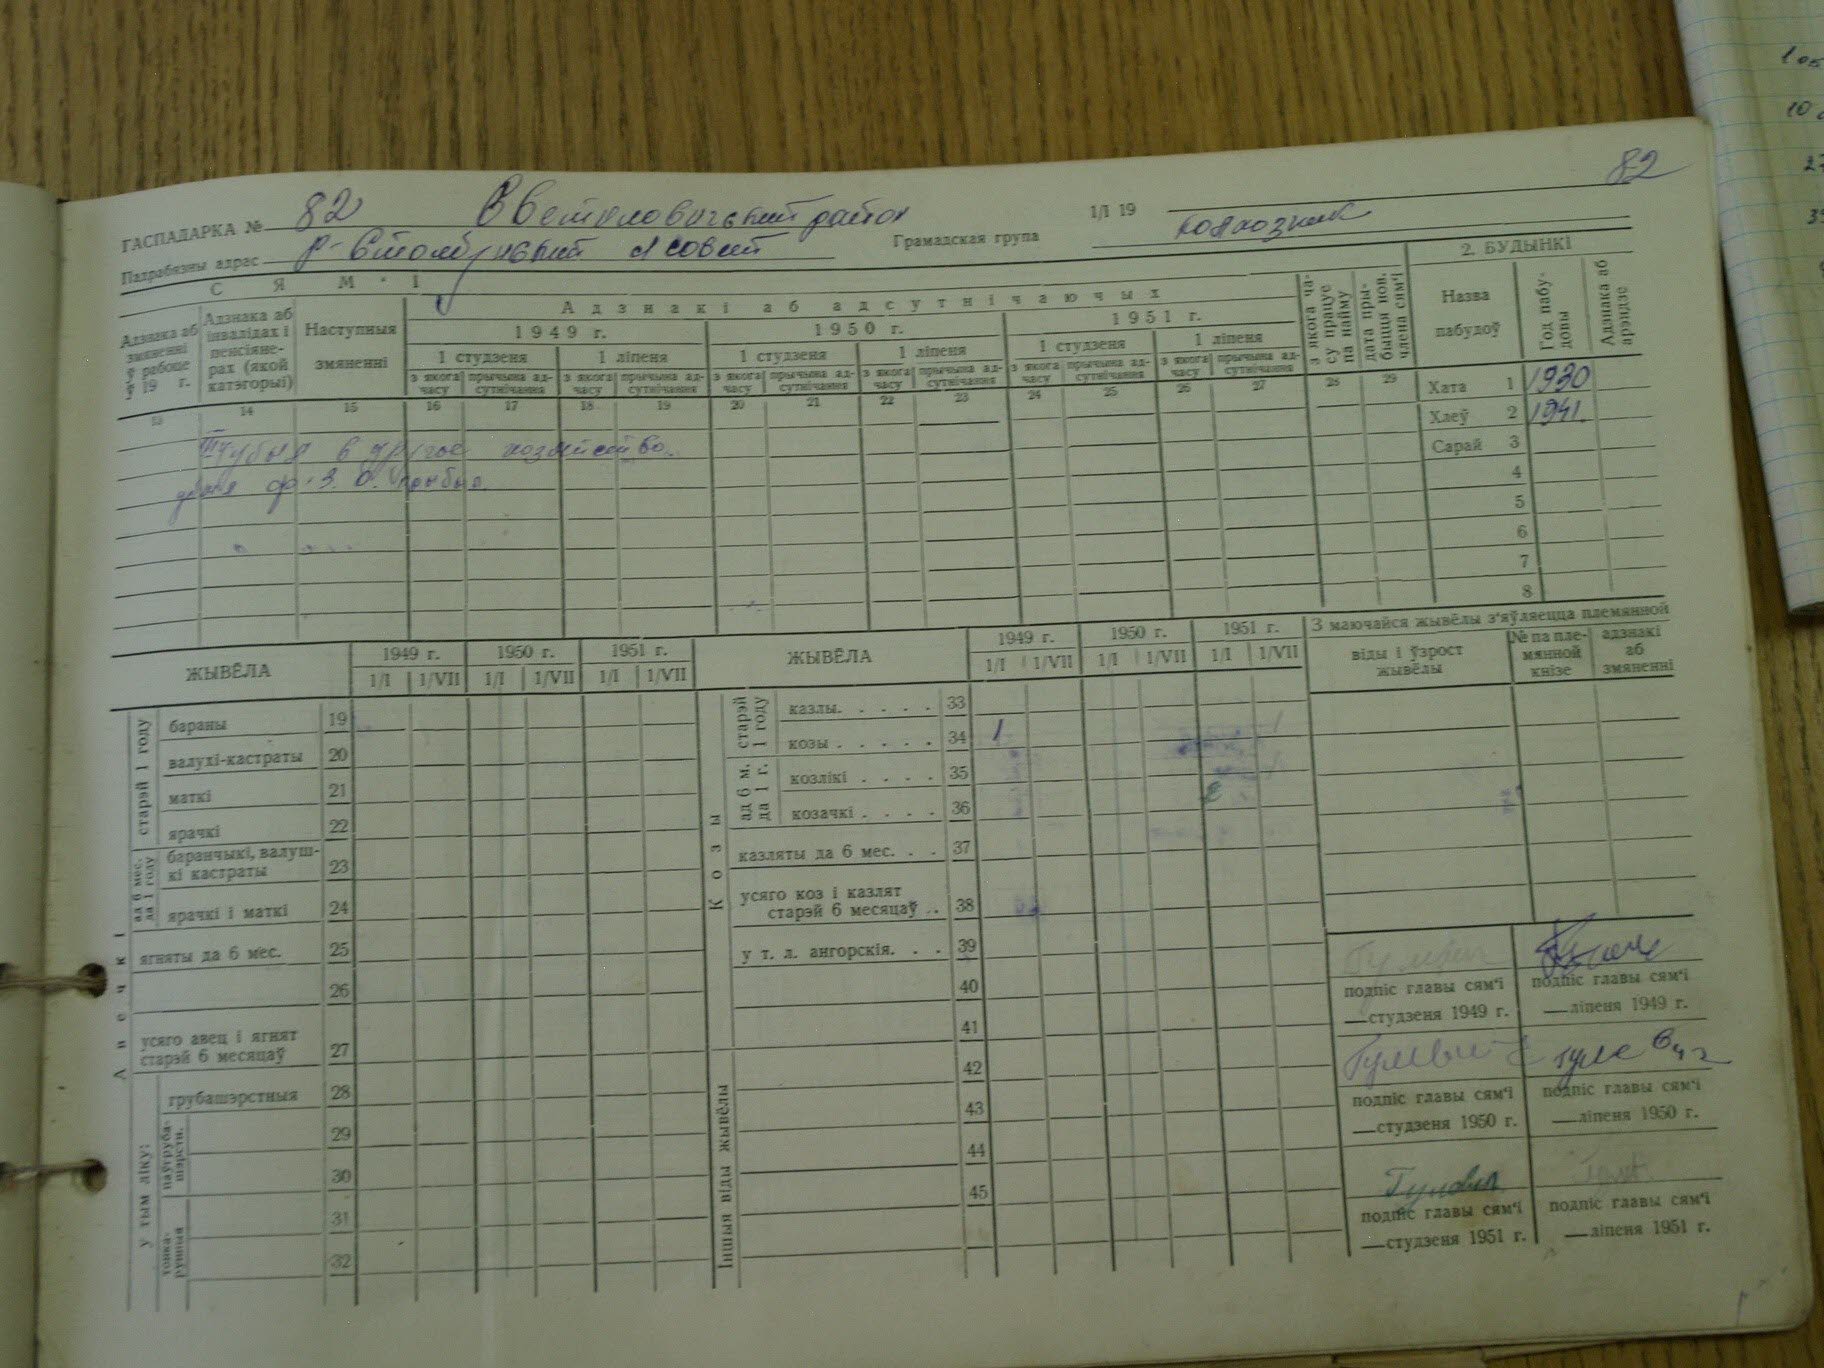 82
ГАСПАДАРКА № 82 район 1/I 19
Падрабязны адрас Грамадская група колхозник
СЯМ'І
Адзнакі аб адсутнічаючых
2. БУДЫНКІ
Адзнака аб змяненні ў рабоце ў 19 г.
Адзнака аб інвалідах і пенсіянерах (якой катэгорыі)
Наступныя змяненні
1949 г. 1950 г. 1951 г.
1 студзеня 1 ліпеня 1 студзеня 1 ліпеня 1 студзеня 1 ліпеня
з якога часу прычына адсутнічання з якога часу прычына адсутнічання з якога часу прычына адсутнічання з якога часу прычына адсутнічання з якога часу прычына адсутнічання з якога часу прычына адсутнічання
з якога часу працуе па найму
дата прыбыцця нов. члена сям'і
Назва пабудоў
Год пабудовы
Адзнака аб арэндзе
13 14 15 16 17 18 19 20 21 22 23 24 25 26 27 28 29
Хата 1 1930
Хлеў 2 1941.
Сарай 3
4
5
6
7
8
в другое хозяйство.
ЖЫВЁЛА 1949 г. 1950 г. 1951 г.
1/I 1/VII 1/I 1/VII 1/I 1/VII
Авечкі
старэй 1 году
бараны 19
валухі-кастраты 20
маткі 21
ярачкі 22
ад 6 мес. да 1 году
баранчыкі, валушкі кастраты 23
ярачкі і маткі 24
ягняты да 6 мес. 25
26
усяго авец і ягнят старэй 6 месяцаў 27
у тым ліку:
грубашэрстныя 28
паўгрубашэрстн.
29
30
тонкарунныя
31
32
ЖЫВЁЛА 1949 г. 1950 г. 1951 г.
1/I 1/VII 1/I 1/VII 1/I 1/VII
Козы
старэй 1 году
казлы. . . . . 33
козы . . . . . 34 1
ад 6 м. да 1 г.
козлікі . . . . 35
козачкі . . . . 36
казляты да 6 мес. . . 37
усяго коз і казлят
старэй 6 месяцаў .. 38
у т. л. ангорскія. . . 39
40
41
Іншыя віды жывёлы
42
43
44
45
З маючайся жывёлы з'яўляецца племянной
віды і ўзрост жывёлы
№ па племянной кнізе
адзнакі аб змяненні
подпіс главы сям'і
—студзеня 1949 г.
подпіс главы сям'і
—ліпеня 1949 г.
Гулевич
подпіс главы сям'і
—студзеня 1950 г.
подпіс главы сям'і
—ліпеня 1950 г.
подпіс главы сям'і
—студзеня 1951 г.
подпіс главы сям'і
—ліпеня 1951 г.